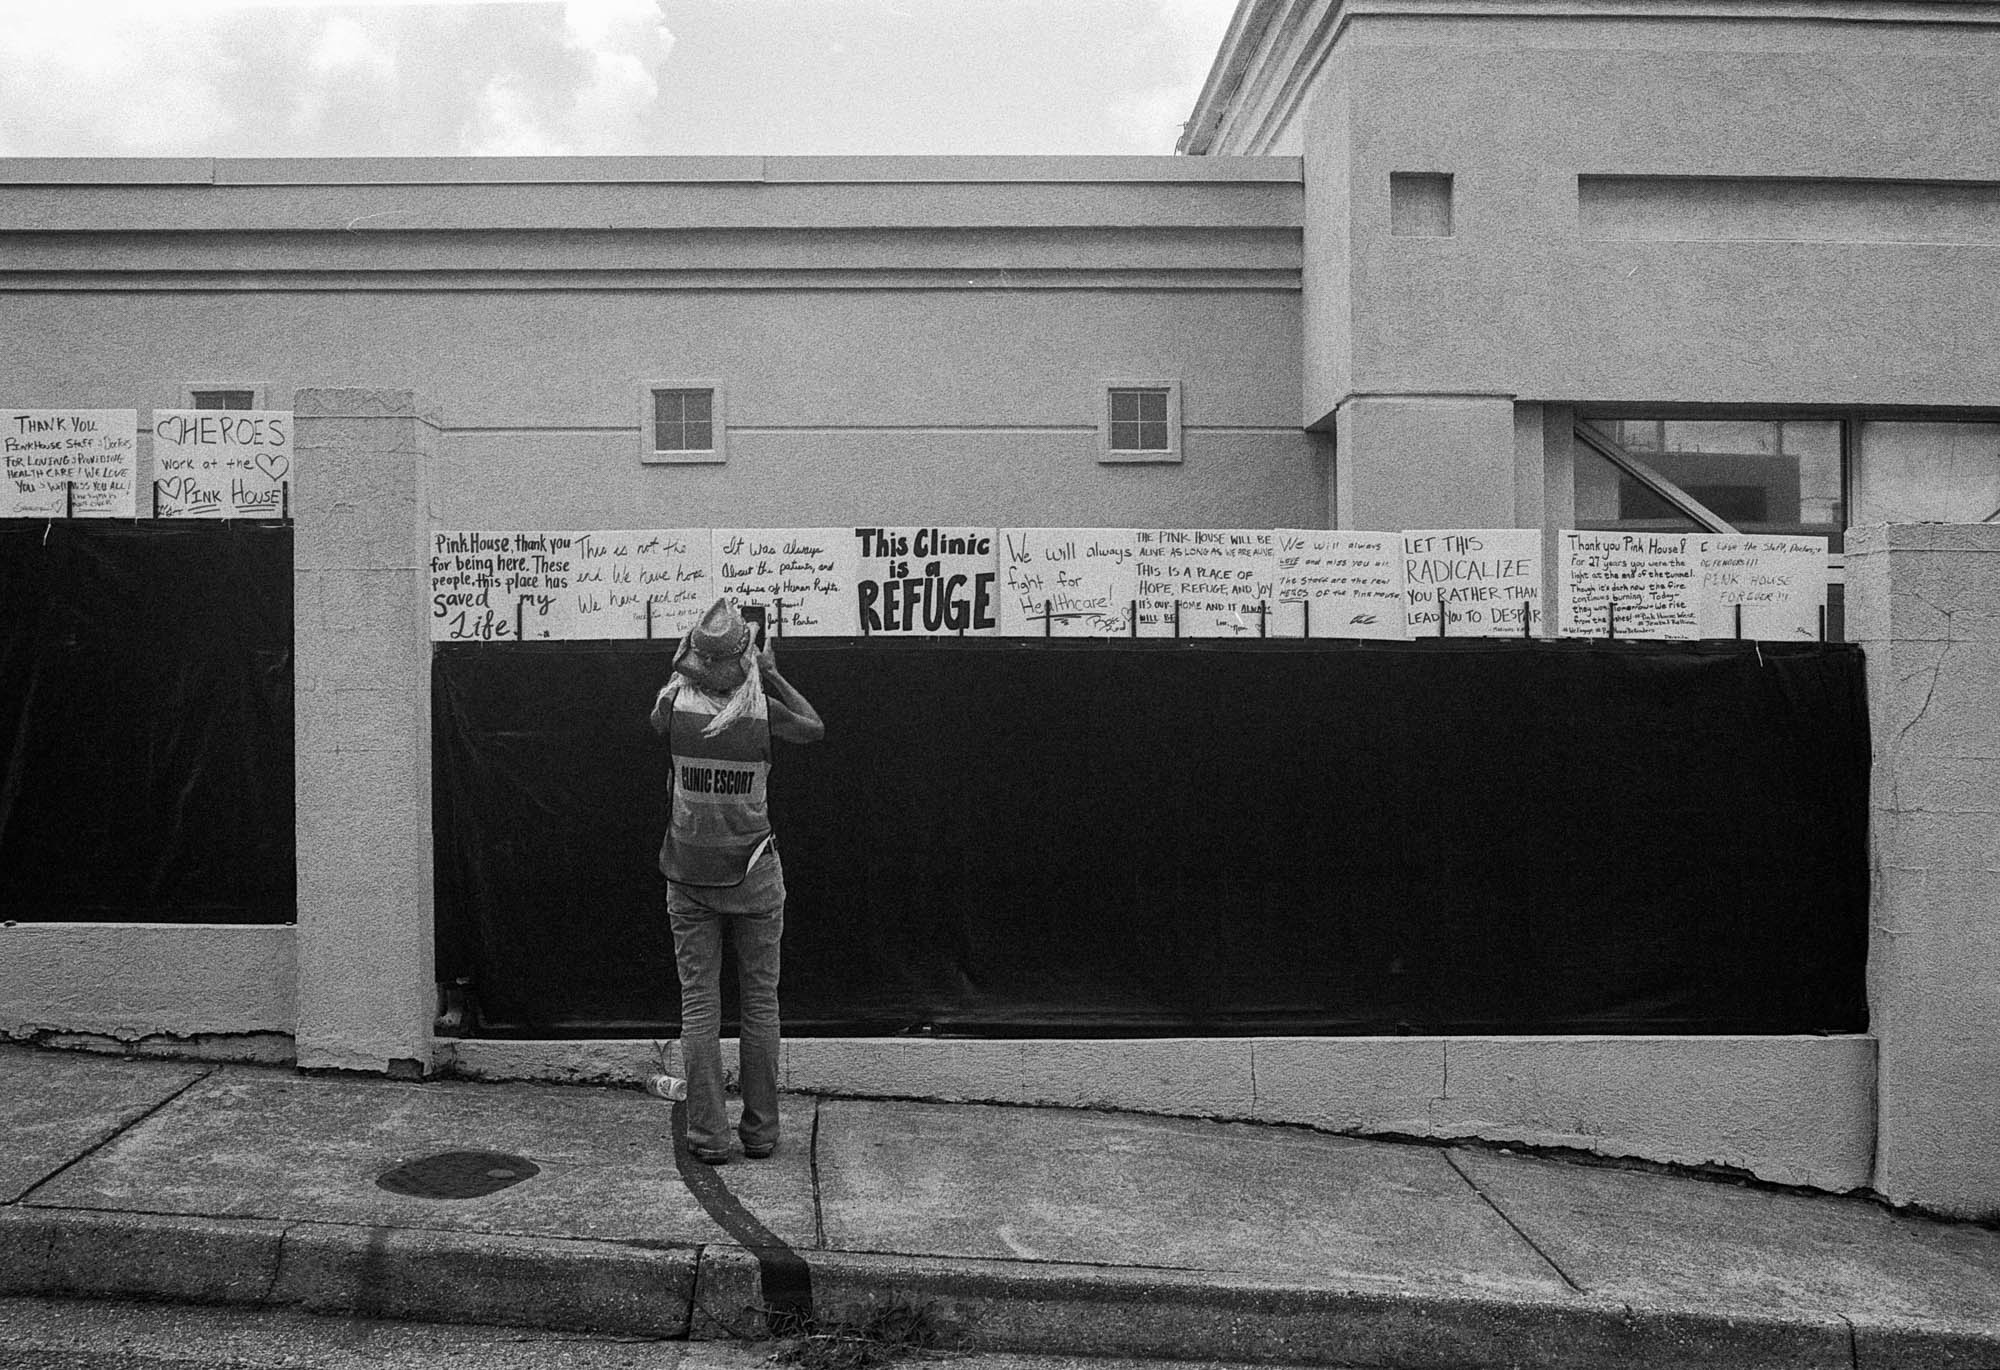 THANK YOU
PINKHOUSE Staff & Doctors
FOR LOVING & PROVIDING
HEALTH CARE! WE LOVE
YOU & Will MISS YOU ALL!
HEROES
work at the
PINK HOUSE
Pink House, thank you
for being here. These
people, this place has
saved my
Life.
This is not the
end We have hope
We have each other
It was always
About the patients, and
in defense of Human Rights.
This Clinic
is a
REFUGE
We will always
fight for
Healthcare!
THE PINK HOUSE WILL BE
ALIVE AS LONG AS WE ARE ALIVE
THIS IS A PLACE OF
HOPE, REFUGE, AND JOY
IT'S OUR HOME AND IT ALWAYS
WILL BE
We will always
LOVE and miss you all
The Staff are the real
HEROES of the Pink House
LET THIS
RADICALIZE
YOU RATHER THAN
LEAD YOU TO DESPAIR
Thank you Pink House!
For 27 years you were the
light at the end of the tunnel.
Though it's dark now the fire
continues burning. Today-
they won. Tomorrow-We rise
from the ashes!
I Love the Staff, Doctors,
DEFENDERS!!!
PINK HOUSE
FOREVER!!!
CLINIC ESCORT